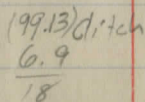 (99.13) ditch
6.9
18